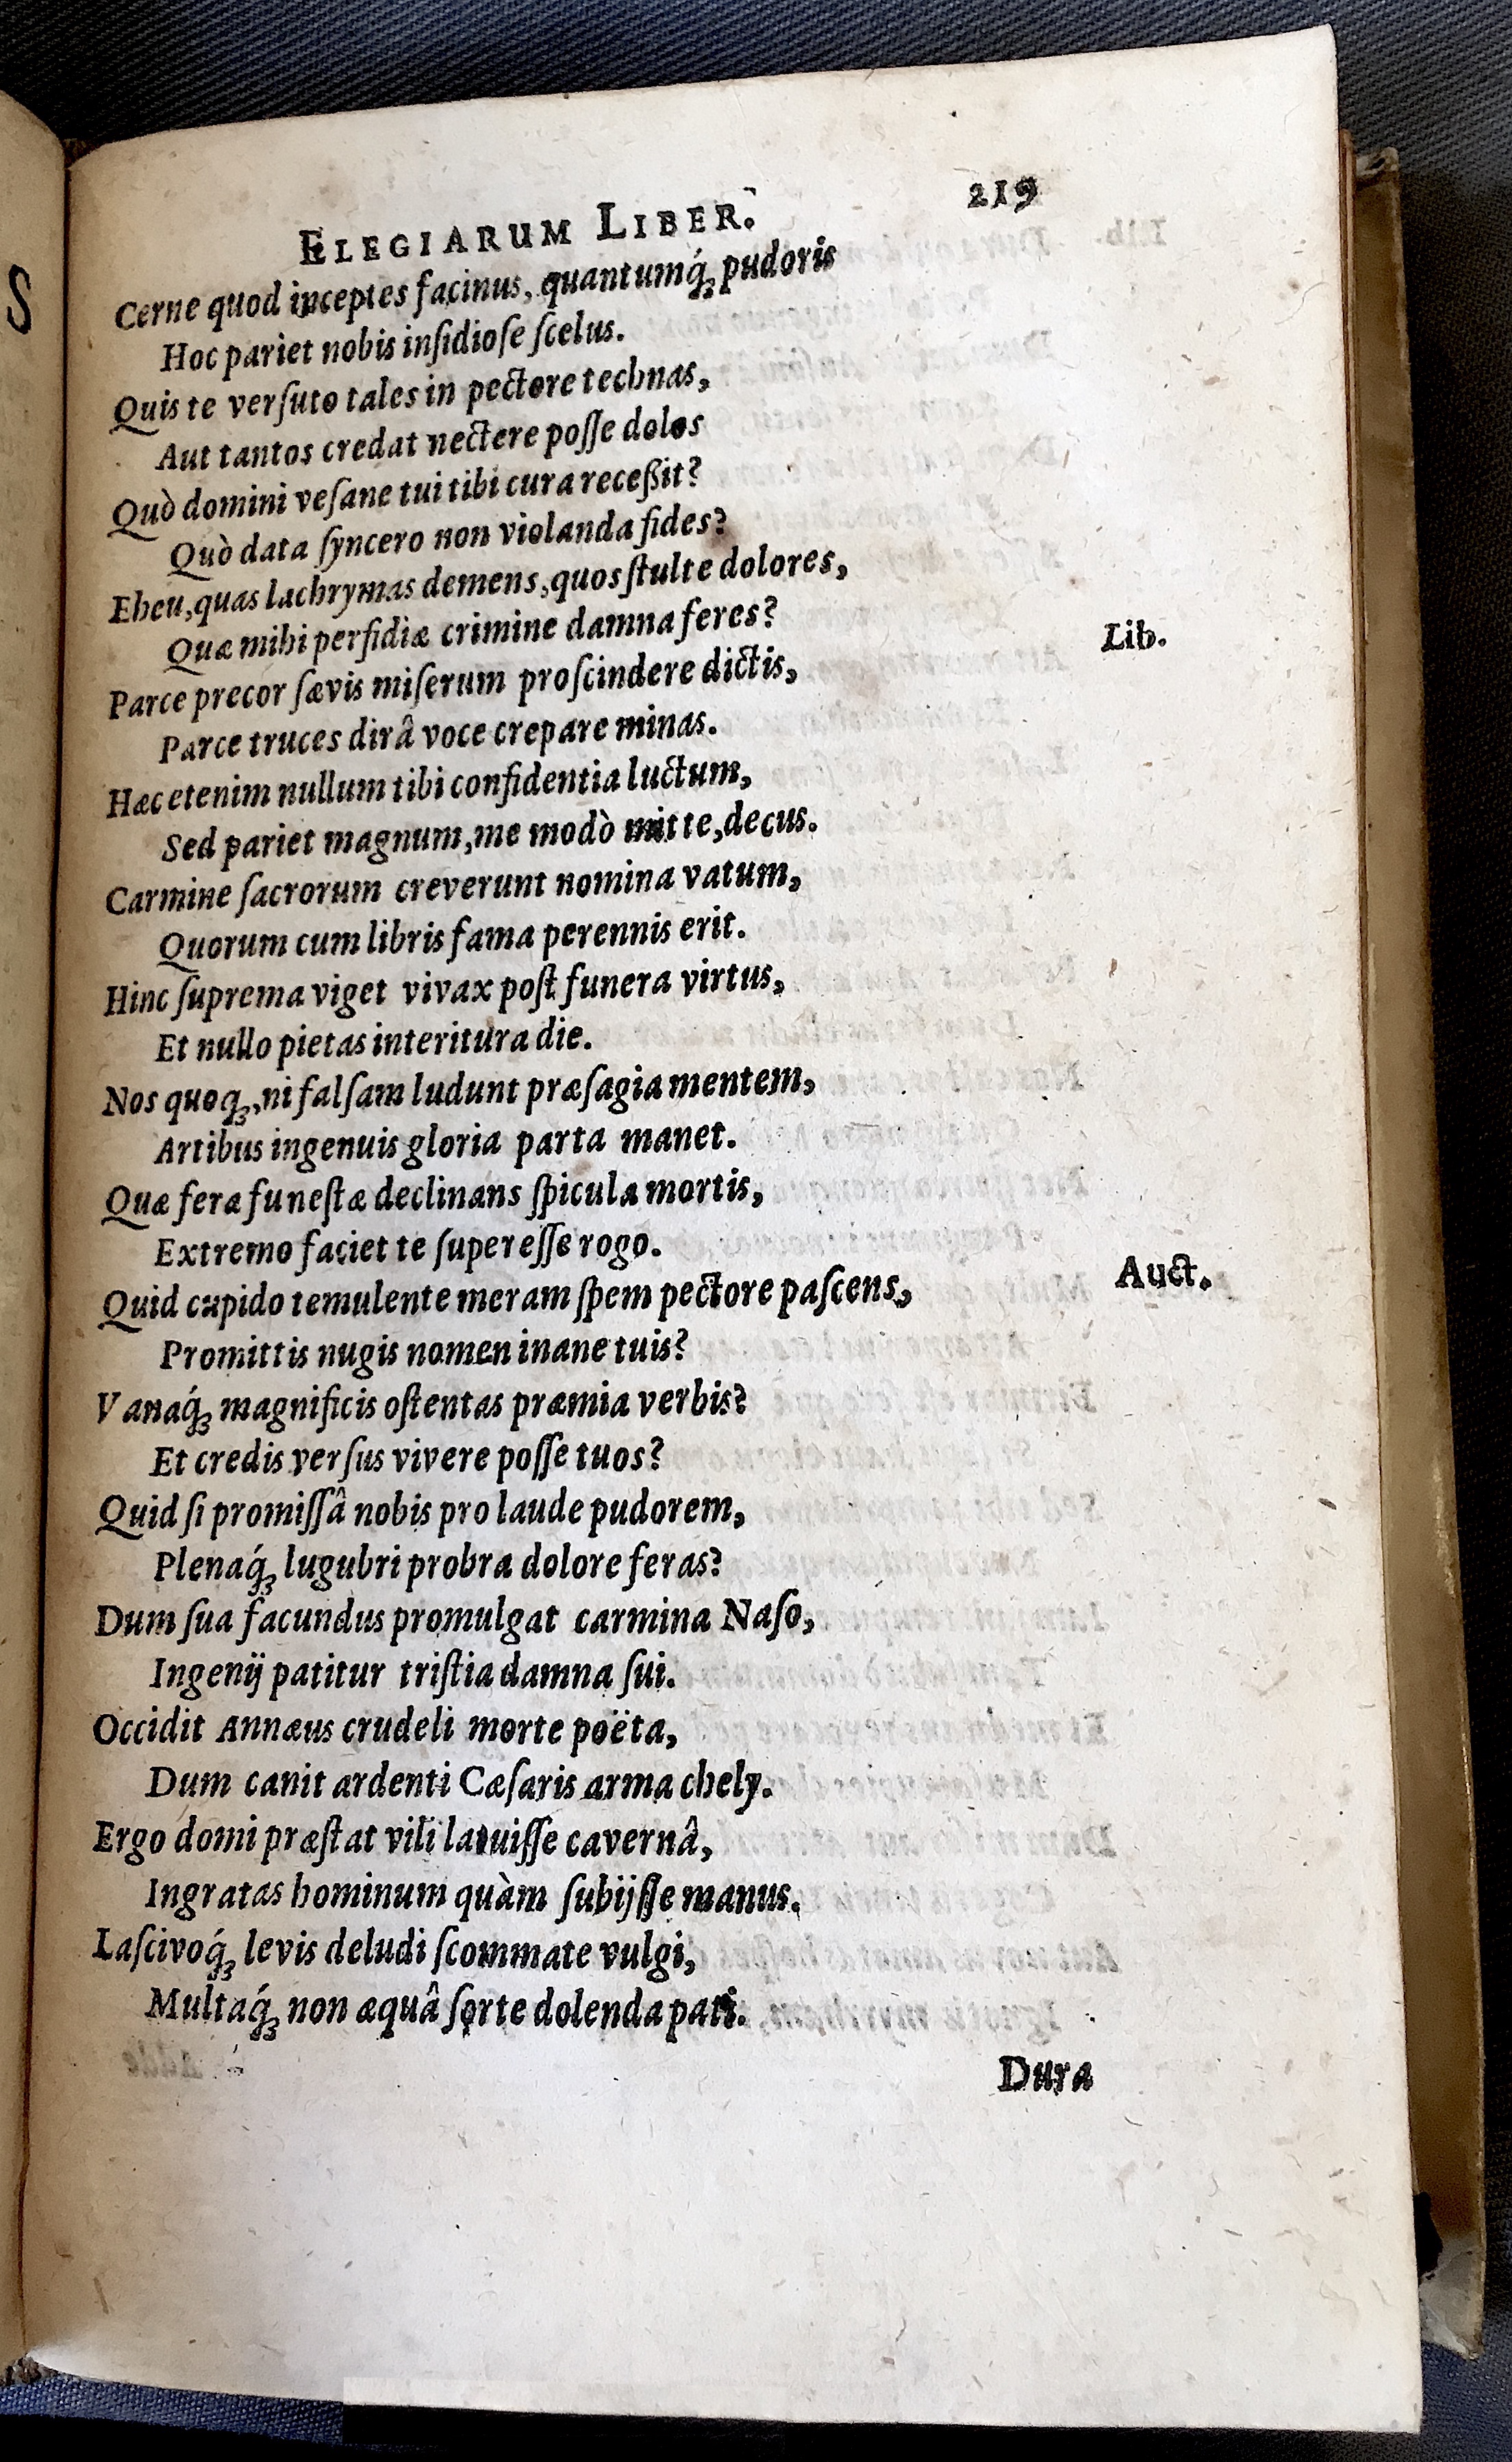 ELEGIARUM LIBER. 219
Cerne quod inceptes facinus, quantumq́ꝫ pudoris
Hoc pariet nobis insidiose scelus.
Quis te versuto tales in pectore technas,
Aut tantos credat nectere posse dolos
Quò domini vesane tui tibi cura recessit?
Quò data syncero non violanda fides?
Eheu, quas lachrymas demens, quos stulte dolores,
Quæ mihi perfidiæ crimine damna feres?
Parce precor sævis miserum proscindere dictis, Lib.
Parce truces dirâ voce crepare minas.
Hæc etenim nullum tibi confidentia luctum,
Sed pariet magnum, me modò mitte, decus.
Carmine sacrorum creverunt nomina vatum,
Quorum cum libris fama perennis erit.
Hinc suprema viget vivax post funera virtus,
Et nullo pietas interitura die.
Nos quoqꝫ, ni falsam ludunt præsagia mentem,
Artibus ingenuis gloria parta manet.
Quæ fera funestæ declinans spicula mortis,
Extremo faciet te superesse rogo.
Quid cupido temulente meram spem pectore pascens, Auct.
Promittis nugis nomen inane tuis?
Vanaq́ꝫ magnificis ostentas præmia verbis?
Et credis versus vivere posse tuos?
Quid si promissâ nobis pro laude pudorem,
Plenaq́ꝫ lugubri probra dolore feras?
Dum sua facundus promulgat carmina Naso,
Ingenij patitur tristia damna sui.
Occidit Annæus crudeli morte poëta,
Dum canit ardenti Cæsaris arma chely.
Ergo domi præstat vili latuisse cavernâ,
Ingratas hominum quàm subijsse manus.
Lascivoq́ꝫ levis deludi scommate vulgi,
Multaq́ꝫ non æquâ sorte dolenda pati.
Dura